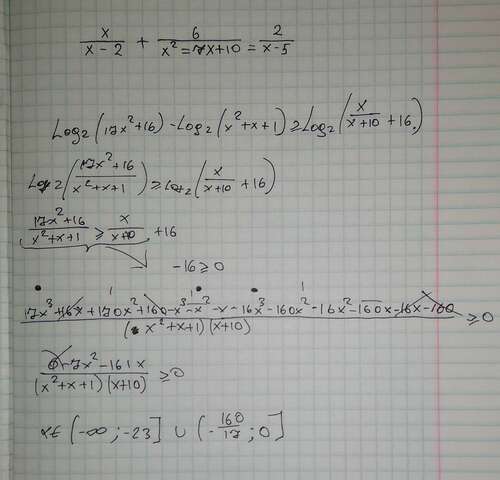 x/(x-2) + 6/(x²-7x+10) = 2/(x-5)
Log₂(17x²+16) - Log₂(x²+x+1) ≥ Log₂(x/(x+10) + 16)
Log₂((17x²+16)/(x²+x+1)) ≥ Log₂(x/(x+10) + 16)
(17x²+16)/(x²+x+1) ≥ x/(x+10) + 16
-16 ≥ 0
(17x³+16x+170x²+160-x³-x²-x-16x³-160x²-16x²-160x-16x-160)/((x²+x+1)(x+10)) ≥ 0
(0-7x²-161x)/((x²+x+1)(x+10)) ≥ 0
x∈(-∞;-23] ∪ (-160/17;0]